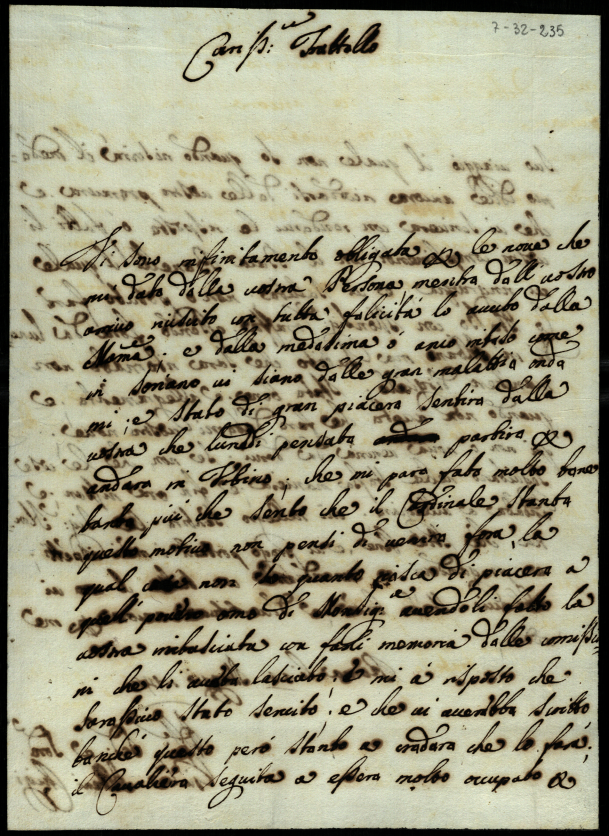 7-32-235
Cariss:mo Fratello
Vi sono infinitamente obligata p le nove che
mi date della vostra Persona mentra dell'vostro
arivo riuscito con tutta falicità lo avuto dalla
Mama e dalla medesima ó anco inteso come
in Soriano vi siano delle gran malattie onde
mi é stato di gran piacere sentire dalla
vostra che lunedi pensate partire p
andare in Vrbino, che mi pare fate molto bene
tanto piú che sento che il Cardinale stante
questo motivo non pensi di venire fora, la
qual non so quanto di piacere a
quell' omo di Monsig.e avendoli fatto la
vostra imbasciata con farli memoria delle comissio=
ni che li avete lasciato, e mi á risposto che
sarassivo stato servito, e che vi averebbe scritto
benche questo però stento a credere che lo fará.
il Cavaliere seguita a essere molto occupato p